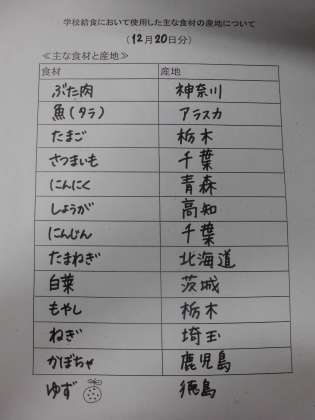 学校給食において使用した主な食材の産地について
(12月20日分)
≪主な食材と産地≫
食材 産地
ぶた肉 神奈川
魚(タラ) アラスカ
たまご 栃木
さつまいも 千葉
にんにく 青森
しょうが 高知
にんじん 千葉
たまねぎ 北海道
白菜 茨城
もやし 栃木
ねぎ 埼玉
かぼちゃ 鹿児島
ゆず 徳島